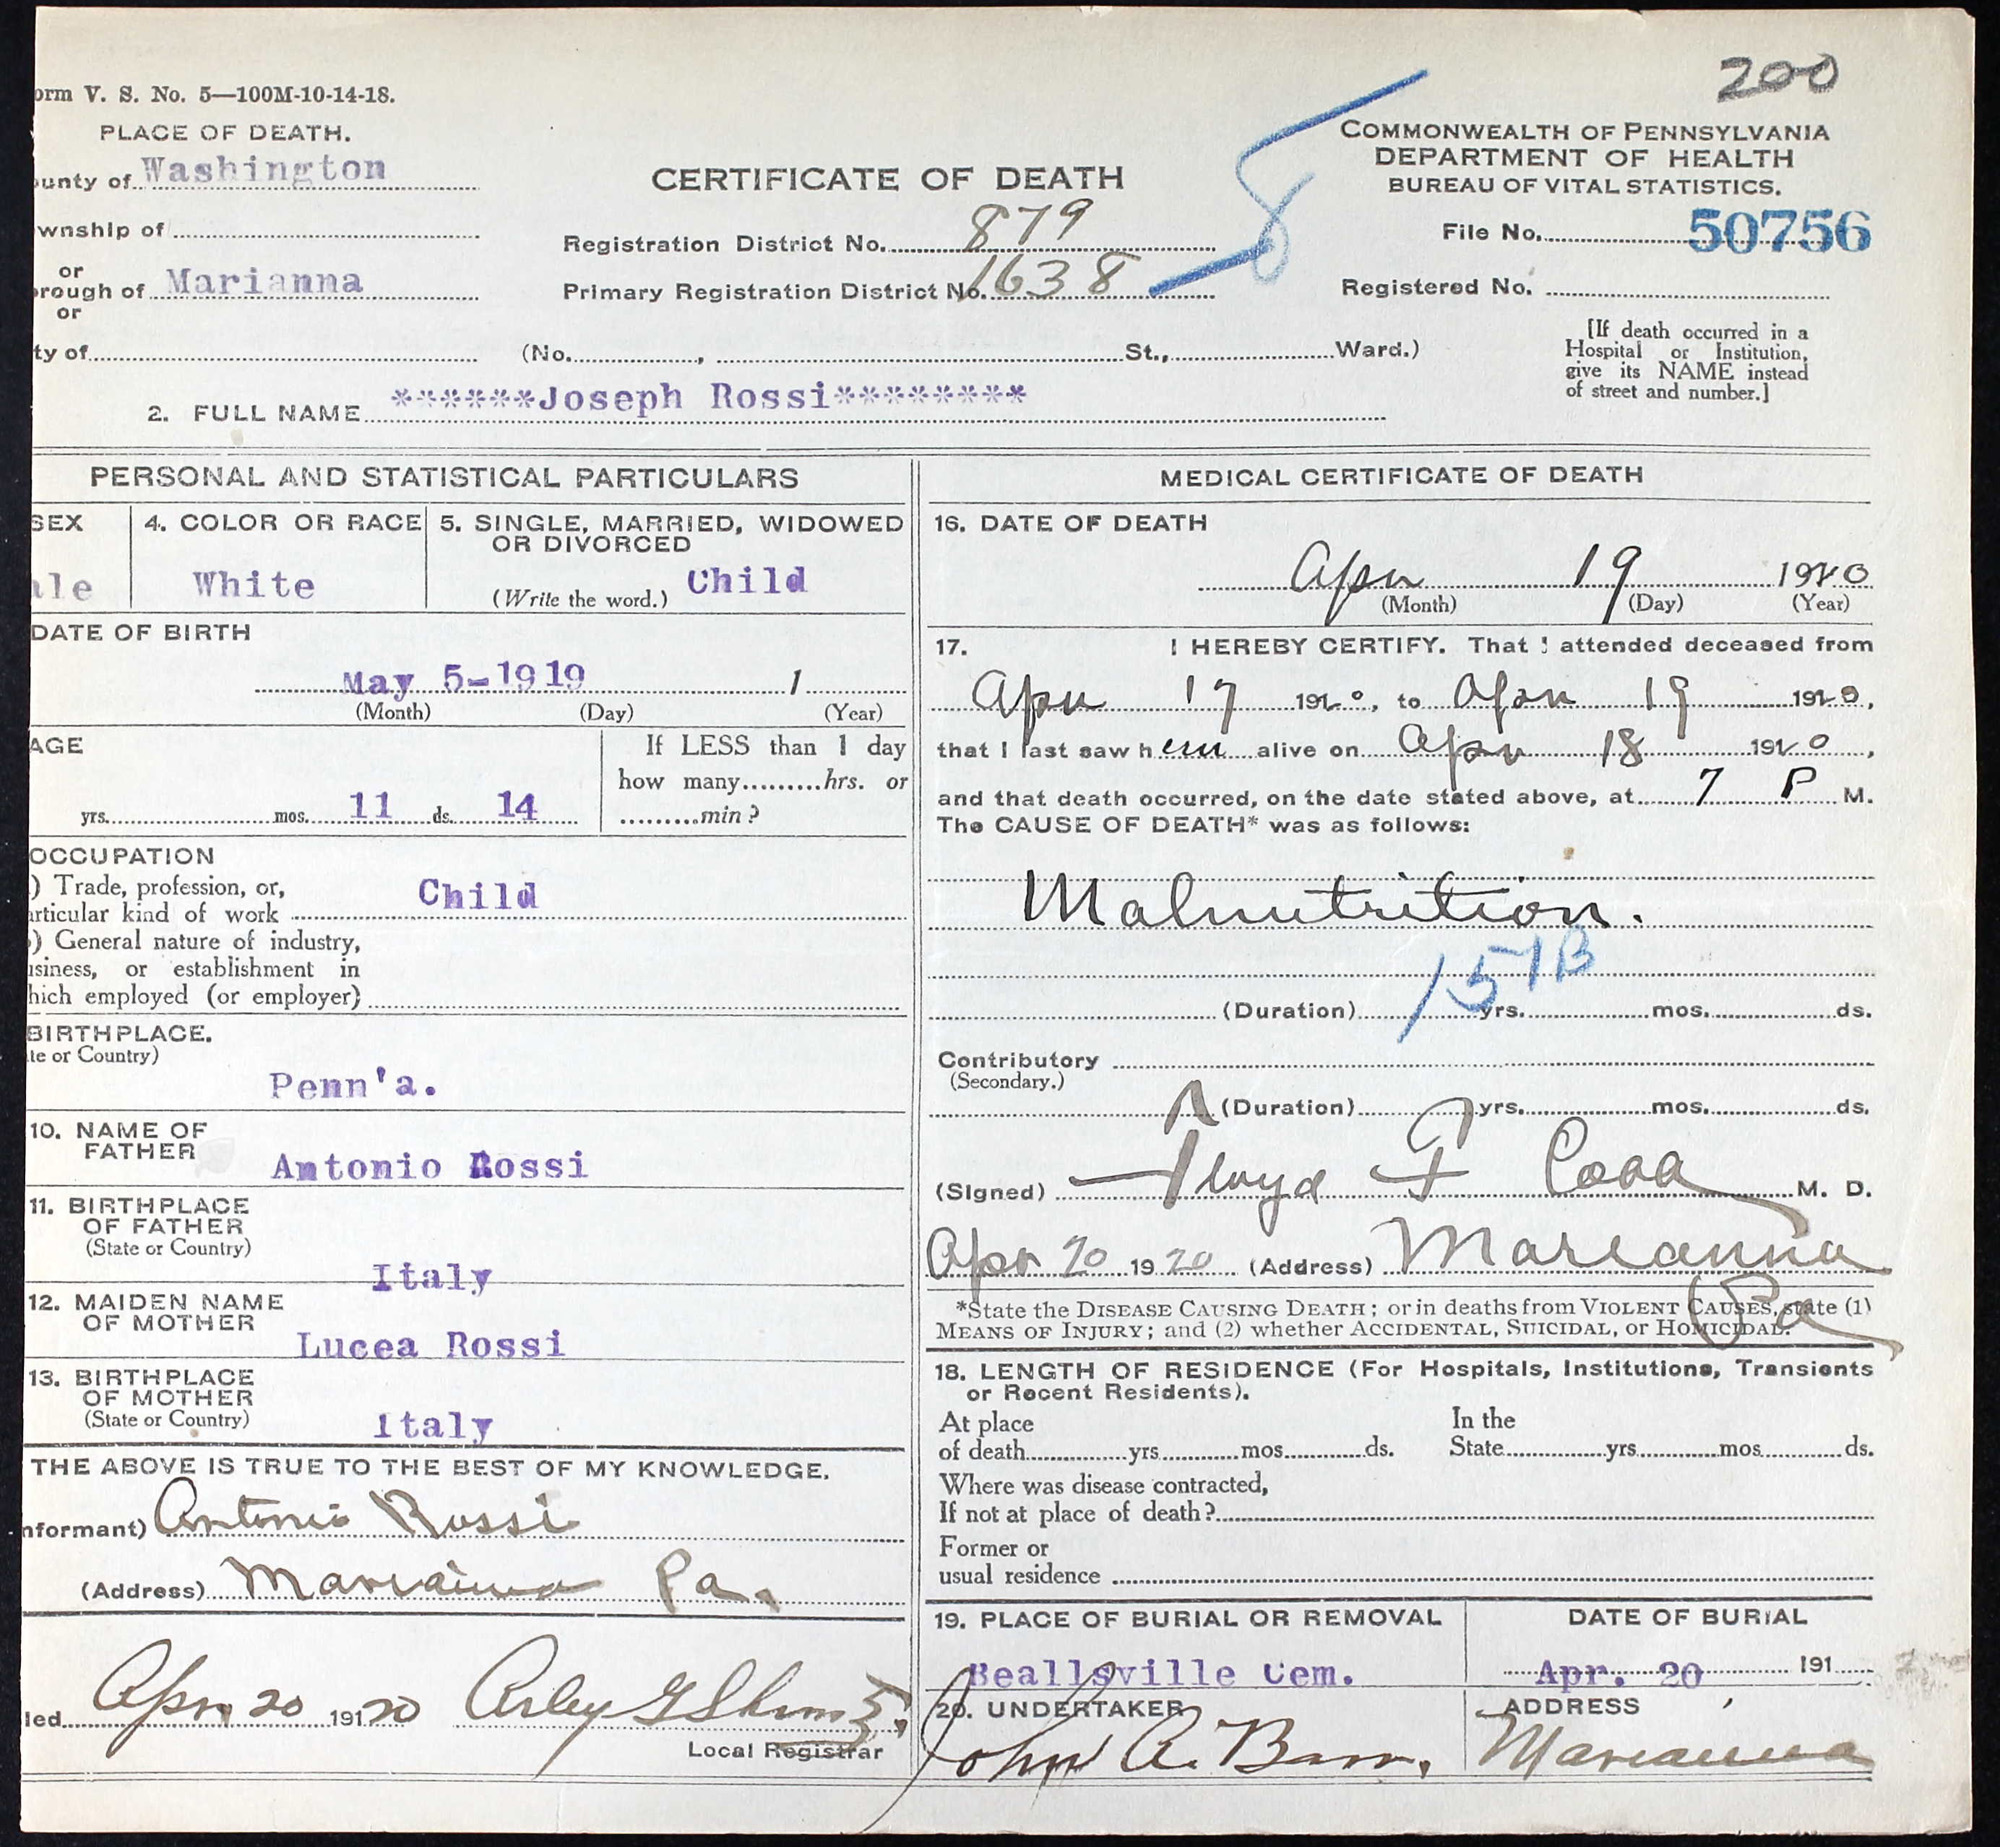 orm V. S. No. 5—100M-10-14-18.
200
PLACE OF DEATH.
ounty of Washington
wnship of
or
rough of Marianna
or
ty of
CERTIFICATE OF DEATH
Registration District No. 879
Primary Registration District No. 1638
(No. , St., Ward.)
COMMONWEALTH OF PENNSYLVANIA
DEPARTMENT OF HEALTH
BUREAU OF VITAL STATISTICS.
File No. 50756
Registered No.
[If death occurred in a
Hospital or Institution,
give its NAME instead
of street and number.]
2. FULL NAME ******Joseph Rossi********
PERSONAL AND STATISTICAL PARTICULARS
SEX
ale
4. COLOR OR RACE
White
5. SINGLE, MARRIED, WIDOWED
OR DIVORCED
(Write the word.) Child
DATE OF BIRTH
May 5-1919 1
(Month) (Day) (Year)
AGE
yrs. mos. 11 ds. 14
If LESS than 1 day
how many hrs. or
min?
OCCUPATION
) Trade, profession, or,
articular kind of work Child
) General nature of industry,
usiness, or establishment in
hich employed (or employer)
BIRTHPLACE.
te or Country)
Penn'a.
10. NAME OF
FATHER
Antonio Rossi
11. BIRTHPLACE
OF FATHER
(State or Country)
Italy
12. MAIDEN NAME
OF MOTHER
Lucea Rossi
13. BIRTHPLACE
OF MOTHER
(State or Country)
Italy
THE ABOVE IS TRUE TO THE BEST OF MY KNOWLEDGE.
nformant) Antonio Rossi
(Address) Marianna Pa.
led Apr. 20 191 20 Arley G
Local Registrar
MEDICAL CERTIFICATE OF DEATH
16. DATE OF DEATH
Apr 19 1920
(Month) (Day) (Year)
17. I HEREBY CERTIFY. That I attended deceased from
Apr 17 1920, to Apr 19 1920,
that I last saw h em alive on Apr 18 1920,
and that death occurred, on the date stated above, at 7 P M.
The CAUSE OF DEATH* was as follows:
Malnutrition.
151B
(Duration) yrs. mos. ds.
Contributory
(Secondary.)
(Duration) yrs. mos. ds.
(Signed) Floyd F Cobb M. D.
Apr 20 1920 (Address) Marianna
Pa
*State the DISEASE CAUSING DEATH; or in deaths from VIOLENT CAUSES, state (1)
MEANS OF INJURY; and (2) whether ACCIDENTAL, SUICIDAL, or HOMICIDAL.
18. LENGTH OF RESIDENCE (For Hospitals, Institutions, Transients
or Recent Residents).
At place In the
of death yrs mos ds. State yrs mos ds.
Where was disease contracted,
If not at place of death?
Former or
usual residence
19. PLACE OF BURIAL OR REMOVAL
Beallsville Cem.
DATE OF BURIAL
Apr. 20 191
20. UNDERTAKER
John A. Barr.
ADDRESS
Marianna